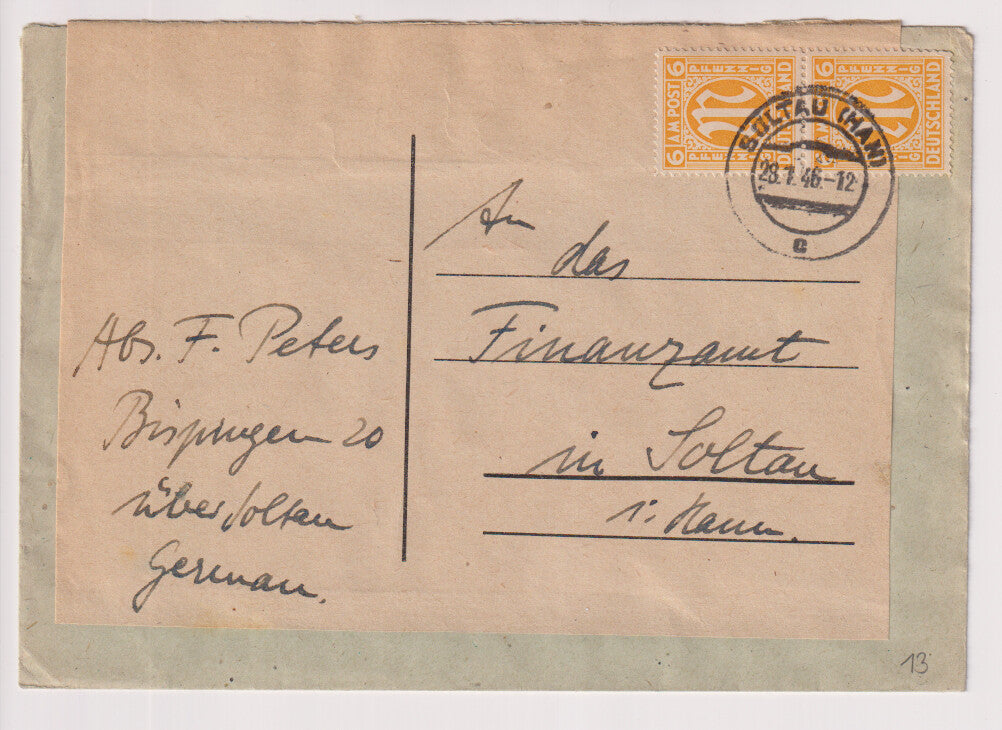 6 AM POST 6
PFENNIG
PFENNIG
DEUTSCHLAND
6
PFENNIG
DEUTSCHLAND
SOLTAU (HAN)
28.1.46.-12
c
An
das
Finanzamt
in Soltau
i. Hann.
Abs. F. Peters
Bispingen 20
über Soltau
German.
13